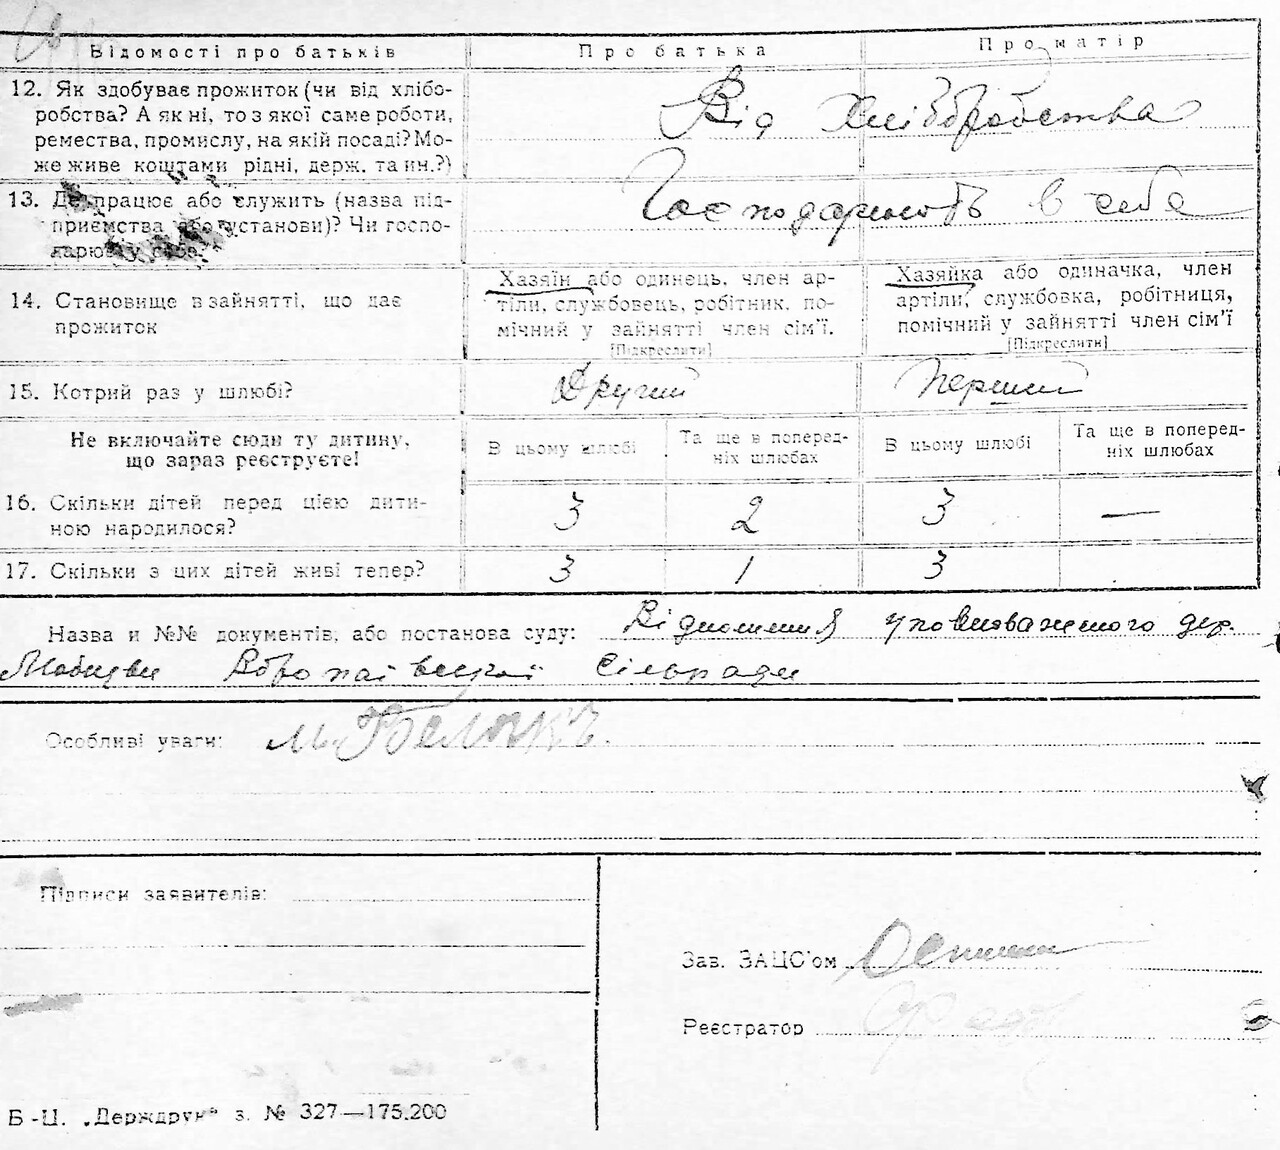 Відомості про батьків Про батька Про матір
12. Як здобуває прожиток (чи від хлібо-
робства? А як ні, то з якої саме роботи,
ремества, промислу, на якій посаді? Мо-
же живе коштами рідні, держ. та ин.?)
Від хліборобства
13. Де працює або служить (назва під-
приємства або установи)? Чи госпо-
дарює у себе?
Господарюють в себе
14. Становище в зайнятті, що дає
прожиток
Хазяїн або одинець, член ар-
тіли, службовець, робітник, по-
мічний у зайнятті член сім'ї.
[Підкреслити]
Хазяйка або одиначка, член
артіли, службовка, робітниця,
помічний у зайнятті член сім'ї
[Підкреслити]
15. Котрий раз у шлюбі? Другий Перший
Не включайте сюди ту дитину,
що зараз реєструєте!
В цьому шлюбі
Та ще в поперед-
ніх шлюбах
В цьому шлюбі
Та ще в поперед-
ніх шлюбах
16. Скільки дітей перед цією дити-
ною народилося?
3 2 3 —
17. Скільки з цих дітей живі тепер? 3 1 3
Назва и №№ документів, або постанова суду: Відношення уповноваженого дер.
сільради
Особливі уваги:
Підписи заявителів:
Зав. ЗАЦС'ом
Реєстратор
Б-Ц. „Держдрук" з. № 327—175.200